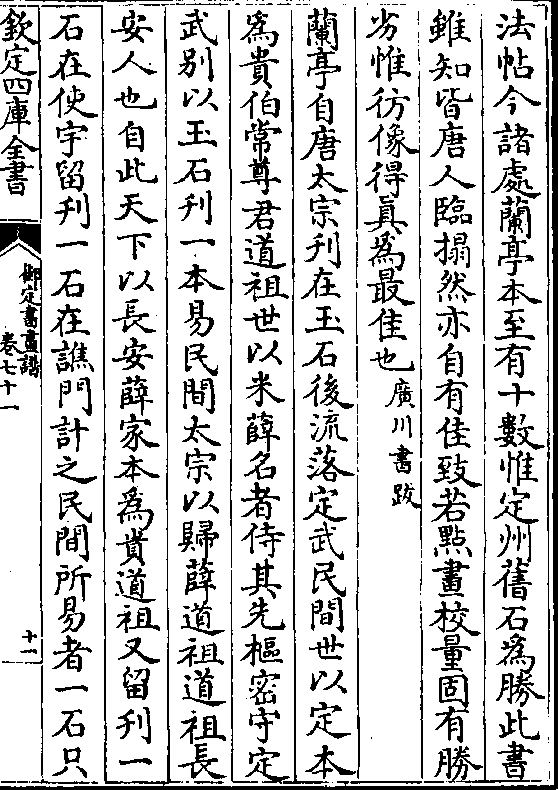 法帖今諸處蘭亭本至有十數惟定州舊石為勝此書
雖知皆唐人臨搨然亦自有佳致若㸃畫校量固有勝
劣惟彷像得真為最佳也廣川書跋
蘭亭自唐太宗刋在玉石後流落定武民間世以定本
為貴伯常尊君道祖世以米薛名者侍其先樞密守定
武别以玉石刋一本易民間太宗以歸薛道祖道祖長
安人也自此天下以長安薛家本為貴道祖又留刋一
石在使宇留刋一石在譙門計之民間所易者一石只
欽定四庫全書
御定書畫譜
卷七十一
十一